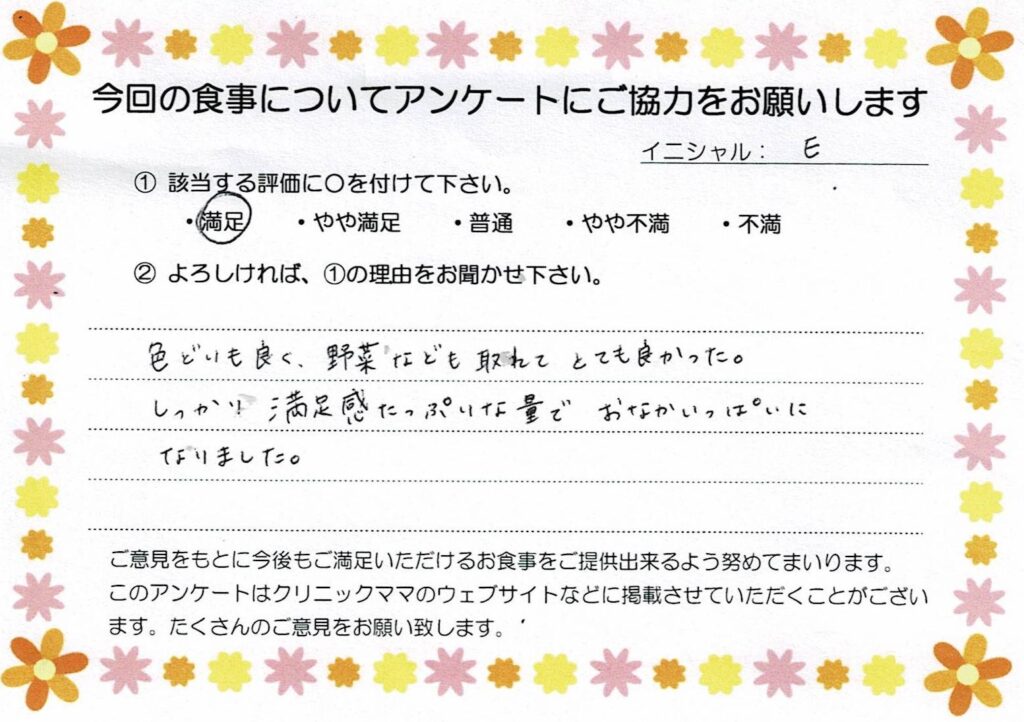 今回の食事についてアンケートにご協力をお願いします
イニシャル： E
① 該当する評価に〇を付けて下さい。
・満足 ・やや満足 ・普通 ・やや不満 ・不満
② よろしければ、①の理由をお聞かせ下さい。
色どりも良く、野菜なども取れてとても良かった。
しっかり満足感たっぷりな量でおなかいっぱいに
なりました。
ご意見をもとに今後もご満足いただけるお食事をご提供出来るよう努めてまいります。
このアンケートはクリニックママのウェブサイトなどに掲載させていただくことがござい
ます。たくさんのご意見をお願い致します。